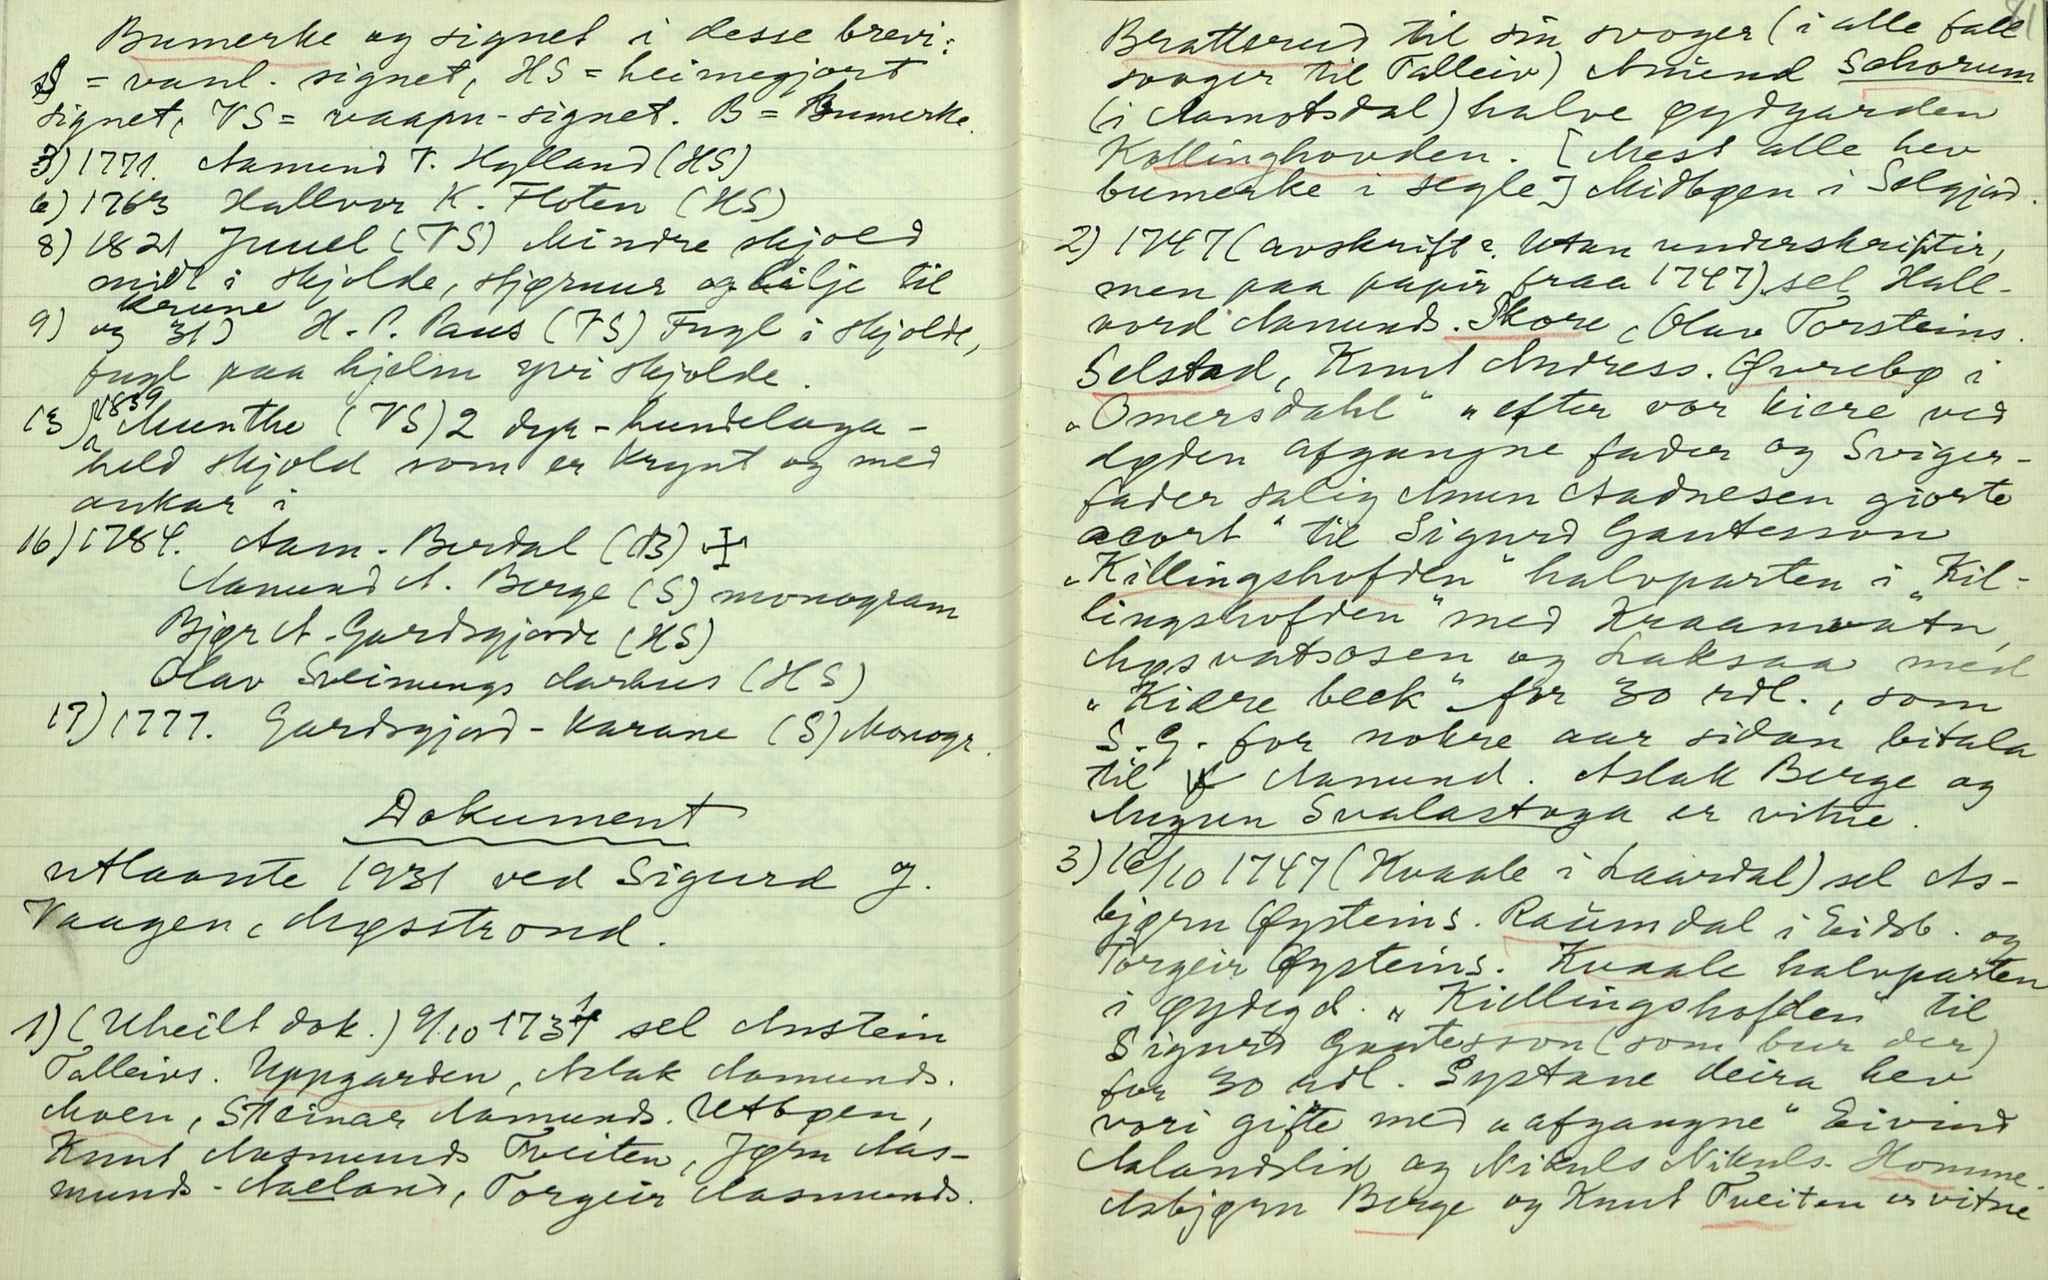 Bumerke og signet i desse brevi:
S = vanl. signet, HS = heimegjort
signet, VS = vaapn-signet. B = Bumerke.
3) 1771. Aamund V. Hylland (HS)
6) 1763 Hallvor K. Floten (HS)
8) 1821 Juuel (VS) Mindre skjold
midt i skjolde, stjernur og lilje til
krune
9) og 31) H. P. Paus (VS) Fugl i skjolde,
fugl paa hjelm yvi skjolde.
13) 1839 Munthe (VS) 2 dyr - hundelaga -
held skjold som er krynt og med
ankar i
16) 1784. Aam. Berdal (B)
Aamund A. Berge (S) monogram
Bjør A. Gardsgjorde (HS)
Olav Sveinungs Aarhus (HS)
17) 1777. Gardsgjord-karane (S) Monogr.
Dokument
utlaante 1931 ved Sigurd G.
Vaagen, Møsstrond.
1) (Uheilt dok.) 9/10 1734 sel Anstein
Talleivs. Uppgarden, Aslak Aamunds.
Moen, Steinar Aamunds. Utbøen,
Knut Aasmunds Tveiten, Jørn Aas-
munds. Aaeland, Torgeir Aasmunds.
81
Brattsrud til sin svoger (i alle fall
svoger til Talleiv) Amund Schorum
(i Aamotsdal) halve øydgarden
Kollinghovden. [Mest alle hev
bumerke i segle] Midbøen i Selgjord.
2) 1747 (avskrift? Utan underskriftir,
men paa papir fraa 1747) sel Hall-
vord Aamunds. Skore, Olav Torsteins.
Selstad, Knut Andress. Øvrebø i
"Omersdahl" "efter vor kiere ved
døden afgangne fader og Sviger-
fader salig Amun Aadnesen giorte
acort" til Sigurd Gautesson
"Killingshofden" halvparten i "Kil-
lingshofden" med Kraamvatn,
Møsvatsosen og Laksaa med
"Kiere beck" for 30 rdl., som
S. G. for nokre aar sidan bitala
til Aamund. Aslak Berge og
Augun Svalastoga er vitne.
3) 16/10 1747 (Kvaale i Laardal) sel As-
bjørn Øysteins. Raumdal i Eidsb. og
Torgeir Øysteins. Kvaale halvparten
i øydegd. "Kidlingshofden" til
Sigurd Gautesson (som bur der)
for 30 rdl. Systane deira hev
vori gifte med "afgangne" Eivind
Aalandslid og Nikuls Nikuls. Homme.
Asbjørn Berge og Knut Tveiten er vitne